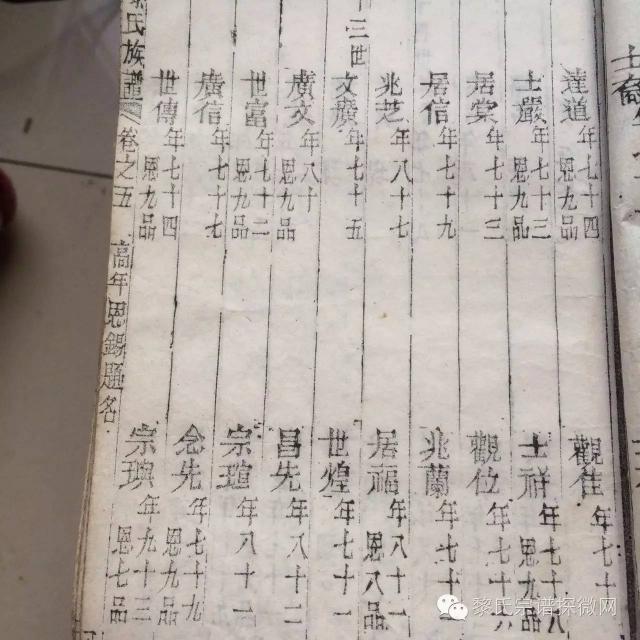 士喬
達道 年七十四 恩九品
觀 年七十
士嚴 年七十三 恩九品
士祥 年七十八 恩九品
居棠 年七十三
觀位 年七十
居信 年七十九
兆蘭 年七十
兆芝 年八十七
居福 年八十一 恩八品
十三世
文 年七十五
世煌 年七十一
廣文 年八十 恩九品
昌先 年八十二
世富 年七十二 恩九品
宗瑄 年八十
廣信 年七十七
念先 年七十九 恩九品
世傳 年七十四 恩九品
宗 年九十三 恩七品
氏族譜 卷之五 高年恩錫題名
黎氏宗谱探微网